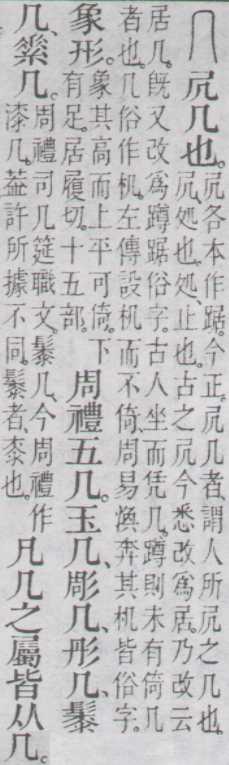 几 凥几也。凥各本作踞。今正。凥几者、謂人所凥之几也。
凥、処也。処、止也。古之凥今悉改爲居。乃改云
居几。既又改爲蹲踞俗字。古人坐而凭几。蹲則未有倚几
者也。几俗作机。左傳設机而不倚、周易渙奔其机皆俗字。
象形。象其高而上平可倚。下
有足。居履切。十五部。周禮五几。玉几、彫几、彤几、鬃
几、素几。周禮司几筵職文。鬃几、今周禮作
漆几。葢許所據不同。鬃者、桼也。凡几之屬皆从几。